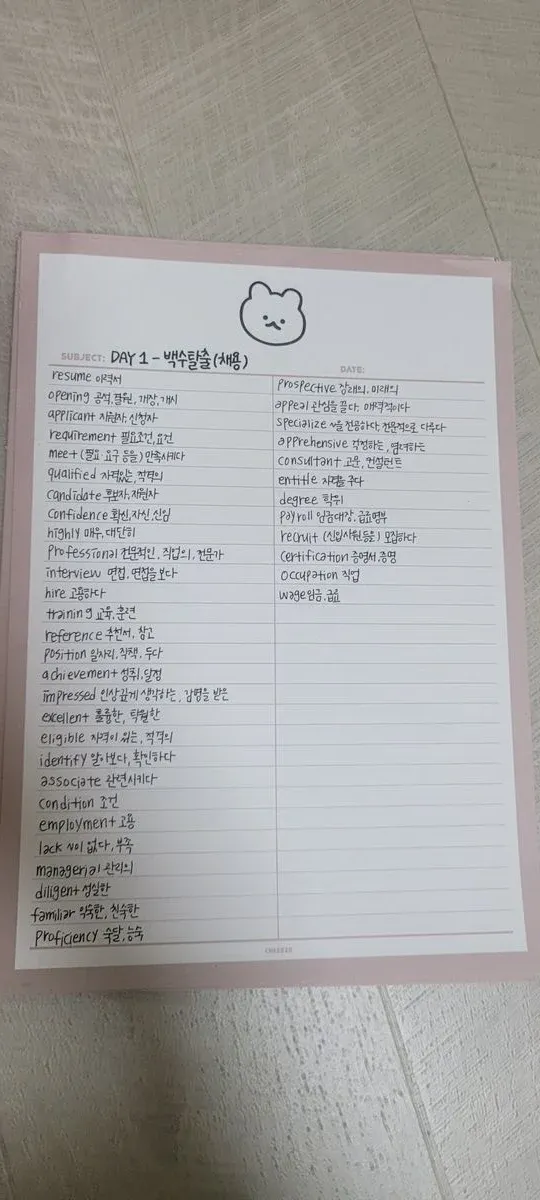 SUBJECT: DAY 1 - 백수탈출(채용)
DATE:
resume 이력서
opening 공석, 결원, 개장, 개시
applicant 지원자, 신청자
requirement 필요조건, 요건
meet (필요·요구 등을) 만족시키다
qualified 자격있는, 적격의
candidate 후보자, 지원자
confidence 확신, 자신, 신임
highly 매우, 대단히
professional 전문적인, 직업의, 전문가
interview 면접, 면접을 보다
hire 고용하다
training 교육, 훈련
reference 추천서, 참고
position 일자리, 직책, 두다
achievement 성취, 달성
impressed 인상깊게 생각하는, 감명을 받은
excellent 훌륭한, 탁월한
eligible 자격이 있는, 적격의
identify 알아보다, 확인하다
associate 관련시키다
condition 조건
employment 고용
lack ~이 없다, 부족
managerial 관리의
diligent 성실한
familiar 익숙한, 친숙한
proficiency 숙달, 능숙
prospective 장래의, 미래의
appeal 관심을 끌다, 매력적이다
specialize ~을 전공하다, 전문적으로 다루다
apprehensive 걱정하는, 염려하는
consultant 고문, 컨설턴트
entitle 자격을 주다
degree 학위
payroll 임금대장, 급료명부
recruit (신입사원등을) 모집하다
certification 증명서, 증명
occupation 직업
wage 임금, 급료